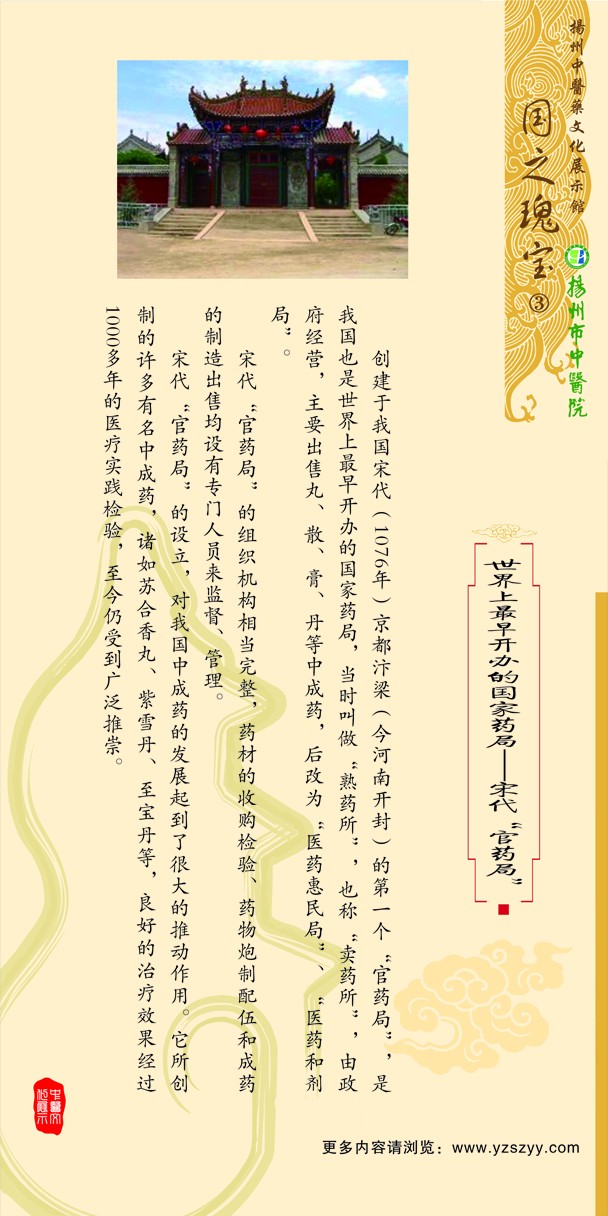 揚州中醫藥文化展示館
国之瑰宝③
揚州市中醫院
世界上最早开办的国家药局——宋代“官药局”
创建于我国宋代（1076年）京都汴梁（今河南开封）的第一个“官药局”，是
我国也是世界上最早开办的国家药局，当时叫做“熟药所”，也称“卖药所”，由政
府经营，主要出售丸、散、膏、丹等中成药，后改为“医药惠民局”、“医药和剂
局”。
宋代“官药局”的组织机构相当完整，药材的收购检验、药物炮制配伍和成药
的制造出售均设有专门人员来监督、管理。
宋代“官药局”的设立，对我国中成药的发展起到了很大的推动作用。它所创
制的许多有名中成药，诸如苏合香丸、紫雪丹、至宝丹等，良好的治疗效果经过
1000多年的医疗实践检验，至今仍受到广泛推崇。
更多内容请浏览：www.yzszyy.com